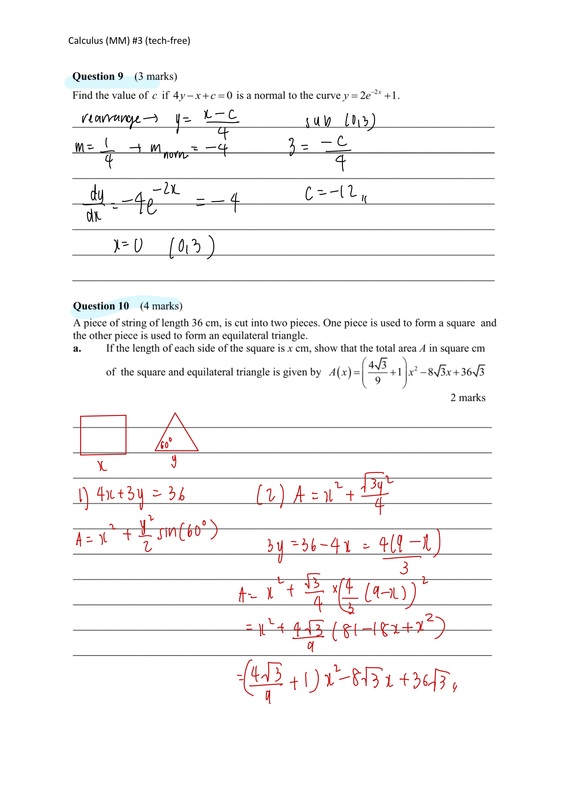 Calculus (MM) #3 (tech-free)
Question 9 (3 marks)
Find the value of c if 4y − x + c = 0 is a normal to the curve y = 2e^{−2x} + 1.
rearrange → y = (x − c)/4
m = 1/4 → m_norm = −4
dy/dx = −4e^{−2x} = −4
x = 0 (0,3)
sub (0,3)
3 = −c/4
c = −12 〃
Question 10 (4 marks)
A piece of string of length 36 cm, is cut into two pieces. One piece is used to form a square and
the other piece is used to form an equilateral triangle.
a. If the length of each side of the square is x cm, show that the total area A in square cm
of the square and equilateral triangle is given by A(x) = (4√3/9 + 1)x² − 8√3x + 36√3
2 marks
60°
x y
1) 4x + 3y = 36
A = x² + y²/2 sin(60°)
(2) A = x² + √3y²/4
3y = 36 − 4x = 4(9 − x)/3
A = x² + √3/4 × (4/3 (9 − x))²
= x² + 4√3/9 (81 − 18x + x²)
= (4√3/9 + 1) x² − 8√3 x + 36√3 〃